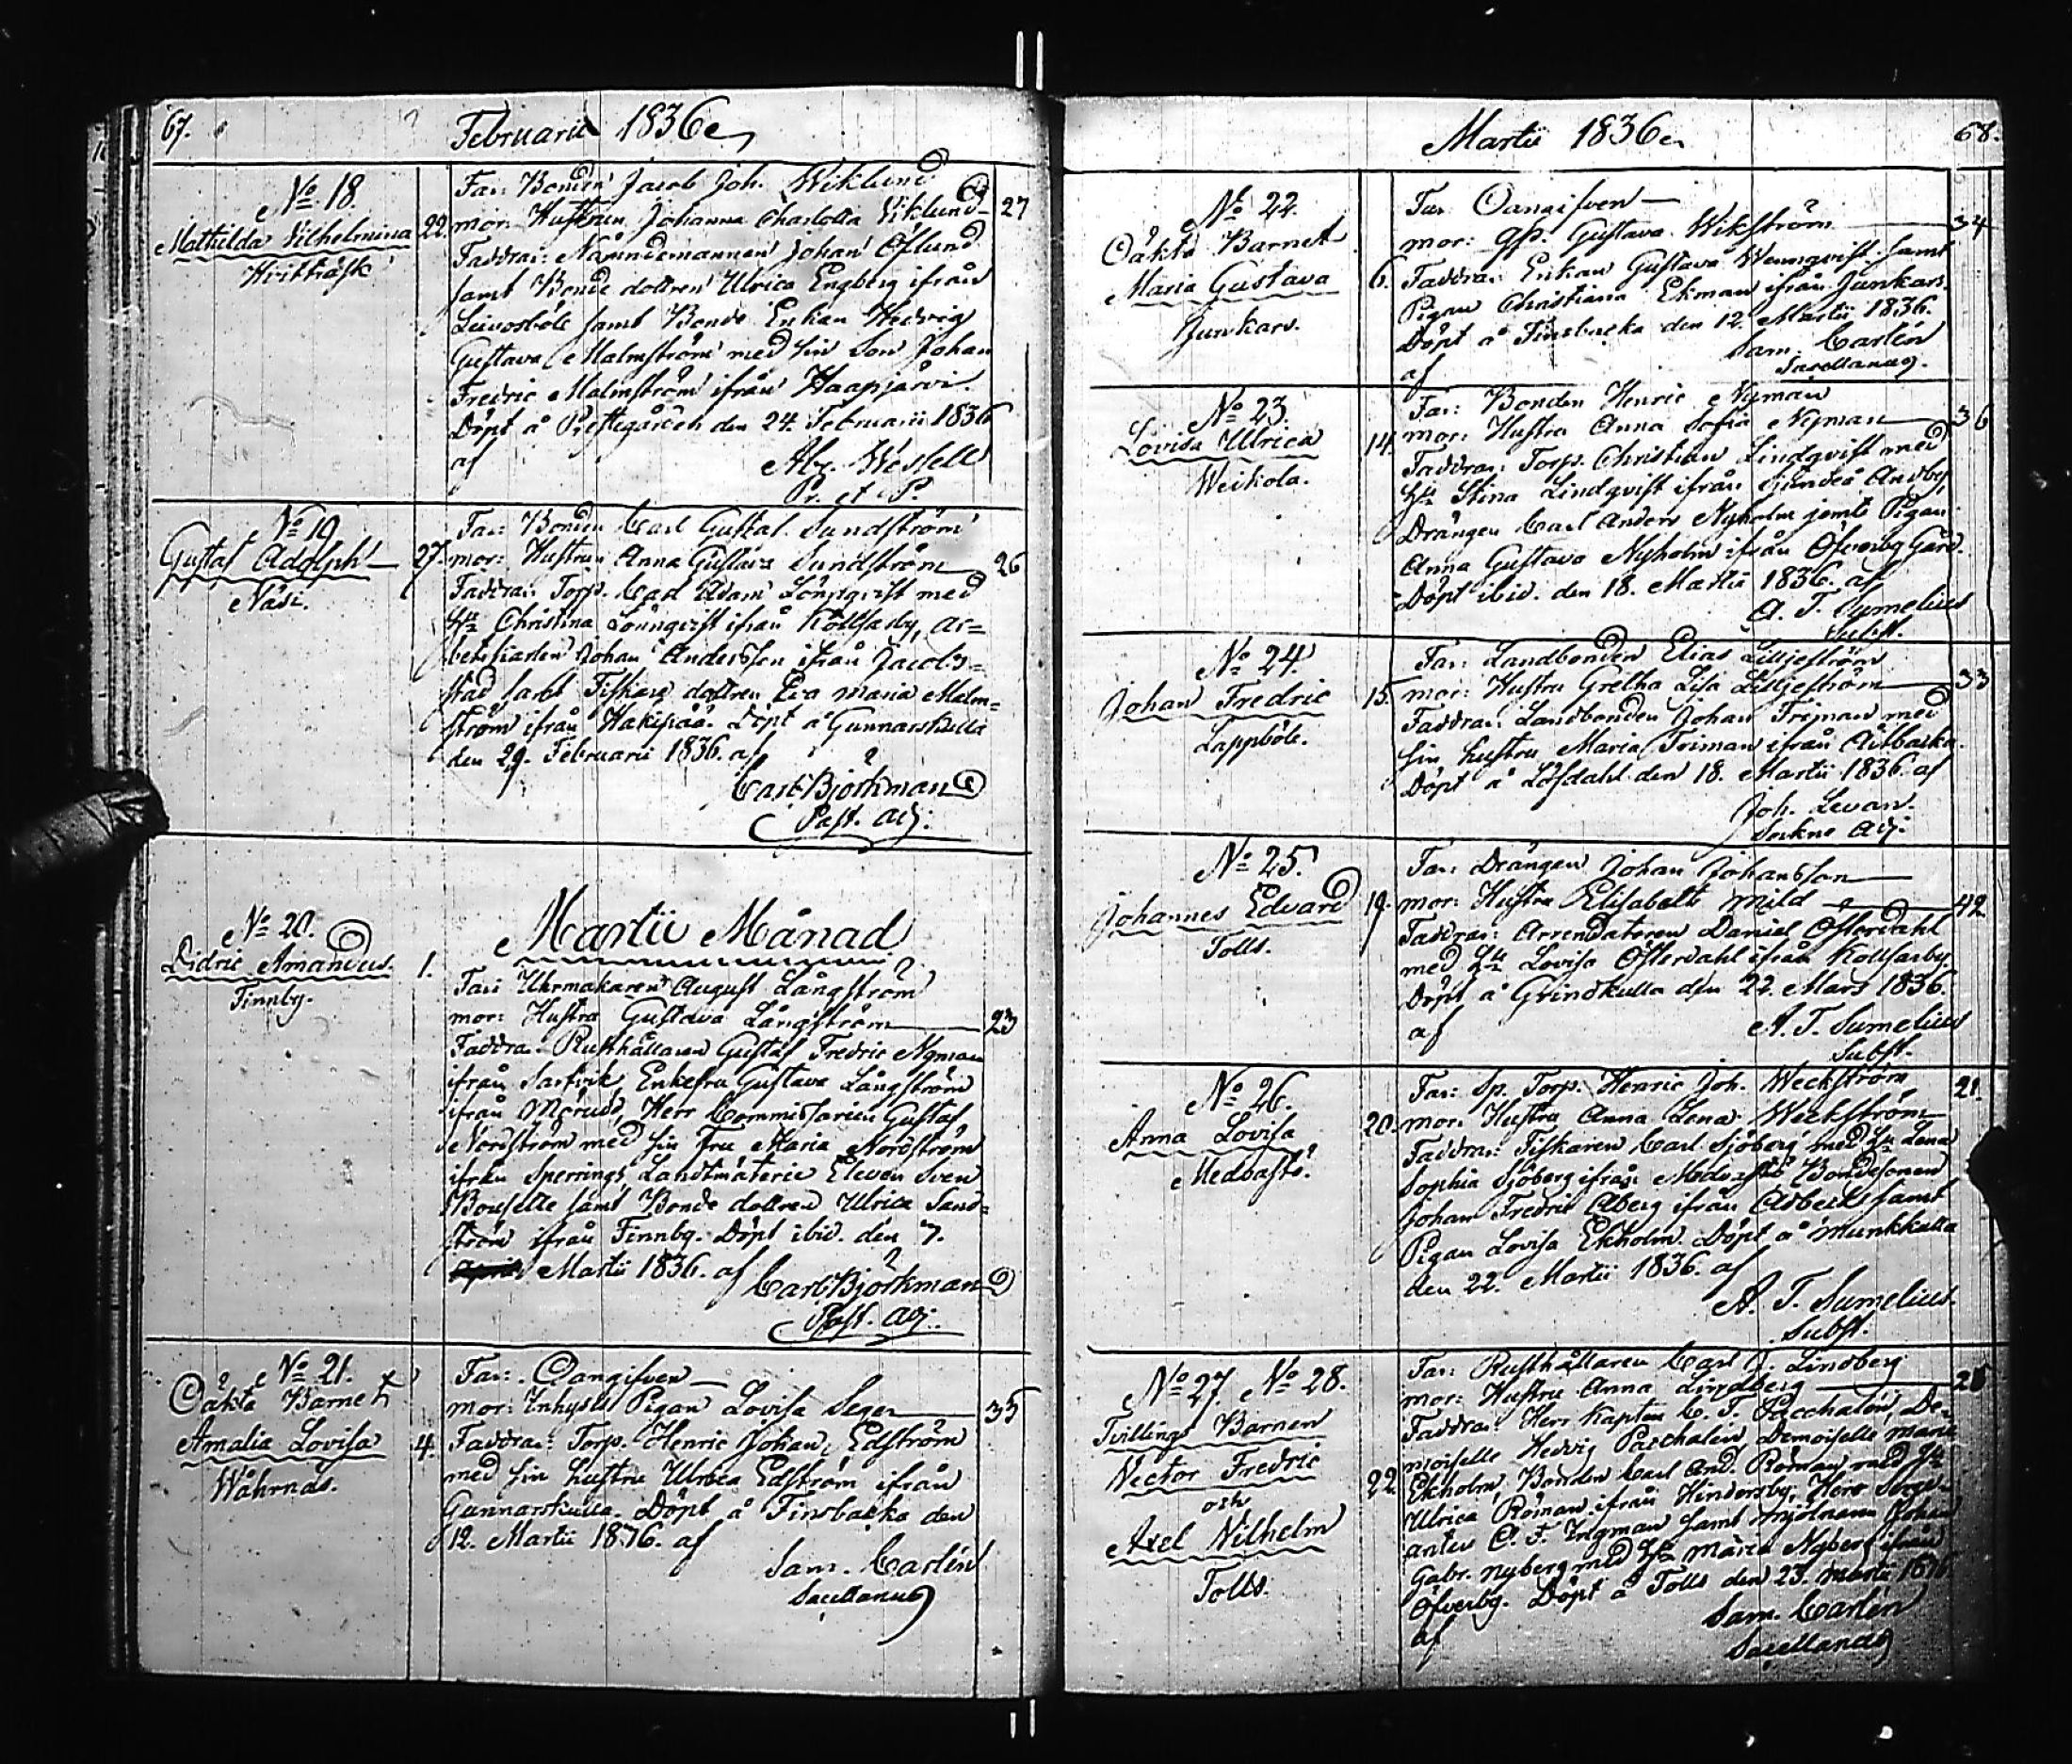 67.
Februarii 1836
No 18.
Mathilda Vilhelmina
Hvitträsk
22.
Far: Bonden Jacob Joh. Wiklund
mor: Hustrun Johanna Charlotta Viklund 27
Faddrar: Nämndemannen Johan Öflund
samt Bonde dottren Ulrica Engberg ifrån
samt Bonde Enkan Hedvig
Gustava Malmström med sin Son Johan
Fredric Malmström ifrån Haapjärvi.
Döpt å Prestegården den 24. Februarii 1836
af
Abr. Wessell
Pr. et P.
No 19
Gustaf Adolph
Näsi.
27.
Far: Bonden Carl Gustaf Sundström
mor: Hustrun Anna Gustava Sundström 26
Faddrar: Torp. Carl Adam Lönnqvist med
Hu Christina Lönnqvist ifrån Kollsarby, ar=
betskarlen Johan Andersson ifrån Jacobs=
stad samt Fiskare dottren Eva Maria Malm=
ström ifrån Hakipää. Döpt å Gunnarskulla
den 29. Februarii 1836. af
Carl Björkman
Past. Adj.
Martii Månad
No 20.
Didric Amandus.
Finnby.
1.
Far: Uhrmakaren August Långström
mor: Hustru Gustava Långström 23
Faddrar: Rusthållaren Gustaf Fredric Nyman
ifrån Sarfvik, Enkefru Gustava Långström
ifrån Herr Commissarien Gustaf
Nordström med sin Fru Maria Nordström
ifrån Sperrings Landtmäterie Eleven Sven
samt Bonde dottren Ulrica Sand=
ström ifrån Finnby. Döpt ibid. den 7.
Martii 1836. af Carl Björkman
Past. Adj.
No 21.
Oäkta Barnet
Amalia Lovisa
Wåhrnäs.
4.
Far: Oangifven
mor: Inhyses Pigan Lovisa Seger 35
Faddrar: Torp. Henric Johan Edström
med sin hustru Ulrica Edström ifrån
Gunnarskulla. Döpt å Finsbacka den
12. Martii 1836. af
Sam. Carlén
Sacellanus
Martii 1836
68.
No 22.
Oäkta Barnet
Maria Gustava
Junkars.
6.
Far Oangifven
mor: gp. Gustava Wikström 34
Faddrar Enkan Gustava Wennqvist samt
Pigan Christiana Ekman ifrån Junkars.
Döpt å Finsbacka den 12. Martii 1836.
af
Sam. Carlén
Sacellanus.
No 23.
Lovisa Ulrica
Weikola.
14.
Far: Bonden Henric Nyman
mor: Hustru Anna Sofia Nyman 36
Faddrar: Torp. Christian Lindqvist med
Hu Stina Lindqvist ifrån Sjundeå Andby,
Drängen Carl Anders Nyholm jemte Pigan
Anna Gustava Nyholm ifrån Öfverby Gård.
Döpt ibid. den 18. Martii 1836. af
A. T. Sumelius
Subst.
No 24.
Johan Fredric
Lappböle.
15.
Far: Landbonden Elias Lilljeström
mor: Hustru Gretha Lisa Lilljeström 33
Faddrar: Landbonden Johan Friman med
sin hustru Maria Friman ifrån Åitbacka.
Döpt å Löfdahl den 18. Martii 1836. af
Joh. Levan.
Sockne Adj.
No 25.
Johannes Edvard
Tolls.
19.
Far: Drängen Johan Johansson
mor: Hustru Elisabeth Mild 42
Faddrar: Arrendatoren Daniel Österdahl
med Hu Lovisa Österdahl ifrån Kollsarby.
Döpt å Grindkulla den 22. Mars 1836.
af
A. T. Sumelius
Subst.
No 26.
Anna Lovisa
Medvastö.
20.
Far: Sp. Torp. Henric Joh. Weckström 21.
mor: Hustru Anna Lena Weckström
Faddrar: Fiskaren Carl Sjöberg med Hu Lena
Sophia Sjöberg ifrån Medvastö Bondesonen
Johan Fredric Åberg ifrån Edbeck samt
Pigan Lovisa Ekholm. Döpt å Munkkulla
den 22. Martii 1836. af
A. T. Sumelius.
Subst.
No 27. No 28.
Tvillings Barnen
Nector Fredric
och
Axel Vilhelm
Tolls.
22
Far: Rusthållaren Carl J. Lindberg
mor: Hustru Anna Lindberg 28
Faddrar: Herr Kapten C. F. Paschalén, De=
moiselle Hedvig Paschalén, Demoiselle Maria
Ekholm, Bonden Carl And. Roman med Hu
Ulrica Roman ifrån Hindersby, Herr Serge=
anten C. F. Ingman samt Mjölnaren Johan
Gabr. Nyberg med Hu Maria Nyberg ifrån
Öfverby. Döpt å Tolls den 23. Martii 1836
af
Sam. Carlén
Sacellanus